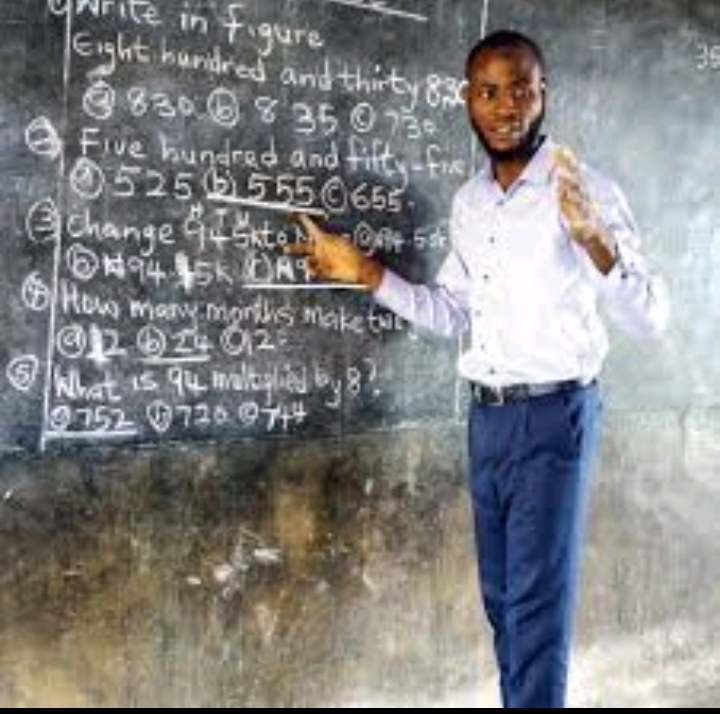 ① Write in figure
Eight hundred and thirty 830
ⓐ 830 ⓑ 8 35 ⓒ 730
② Five hundred and fifty-five
ⓐ 525 ⓑ 555 ⓒ 655
③ Change 945k to
ⓑ ₦94.45k ⓒ ₦9
④ How many months make
ⓐ 12 ⓑ 24 ⓒ
⑤ What is 94 multiplied by 8?
ⓐ 752 ⓑ 720 ⓒ 744